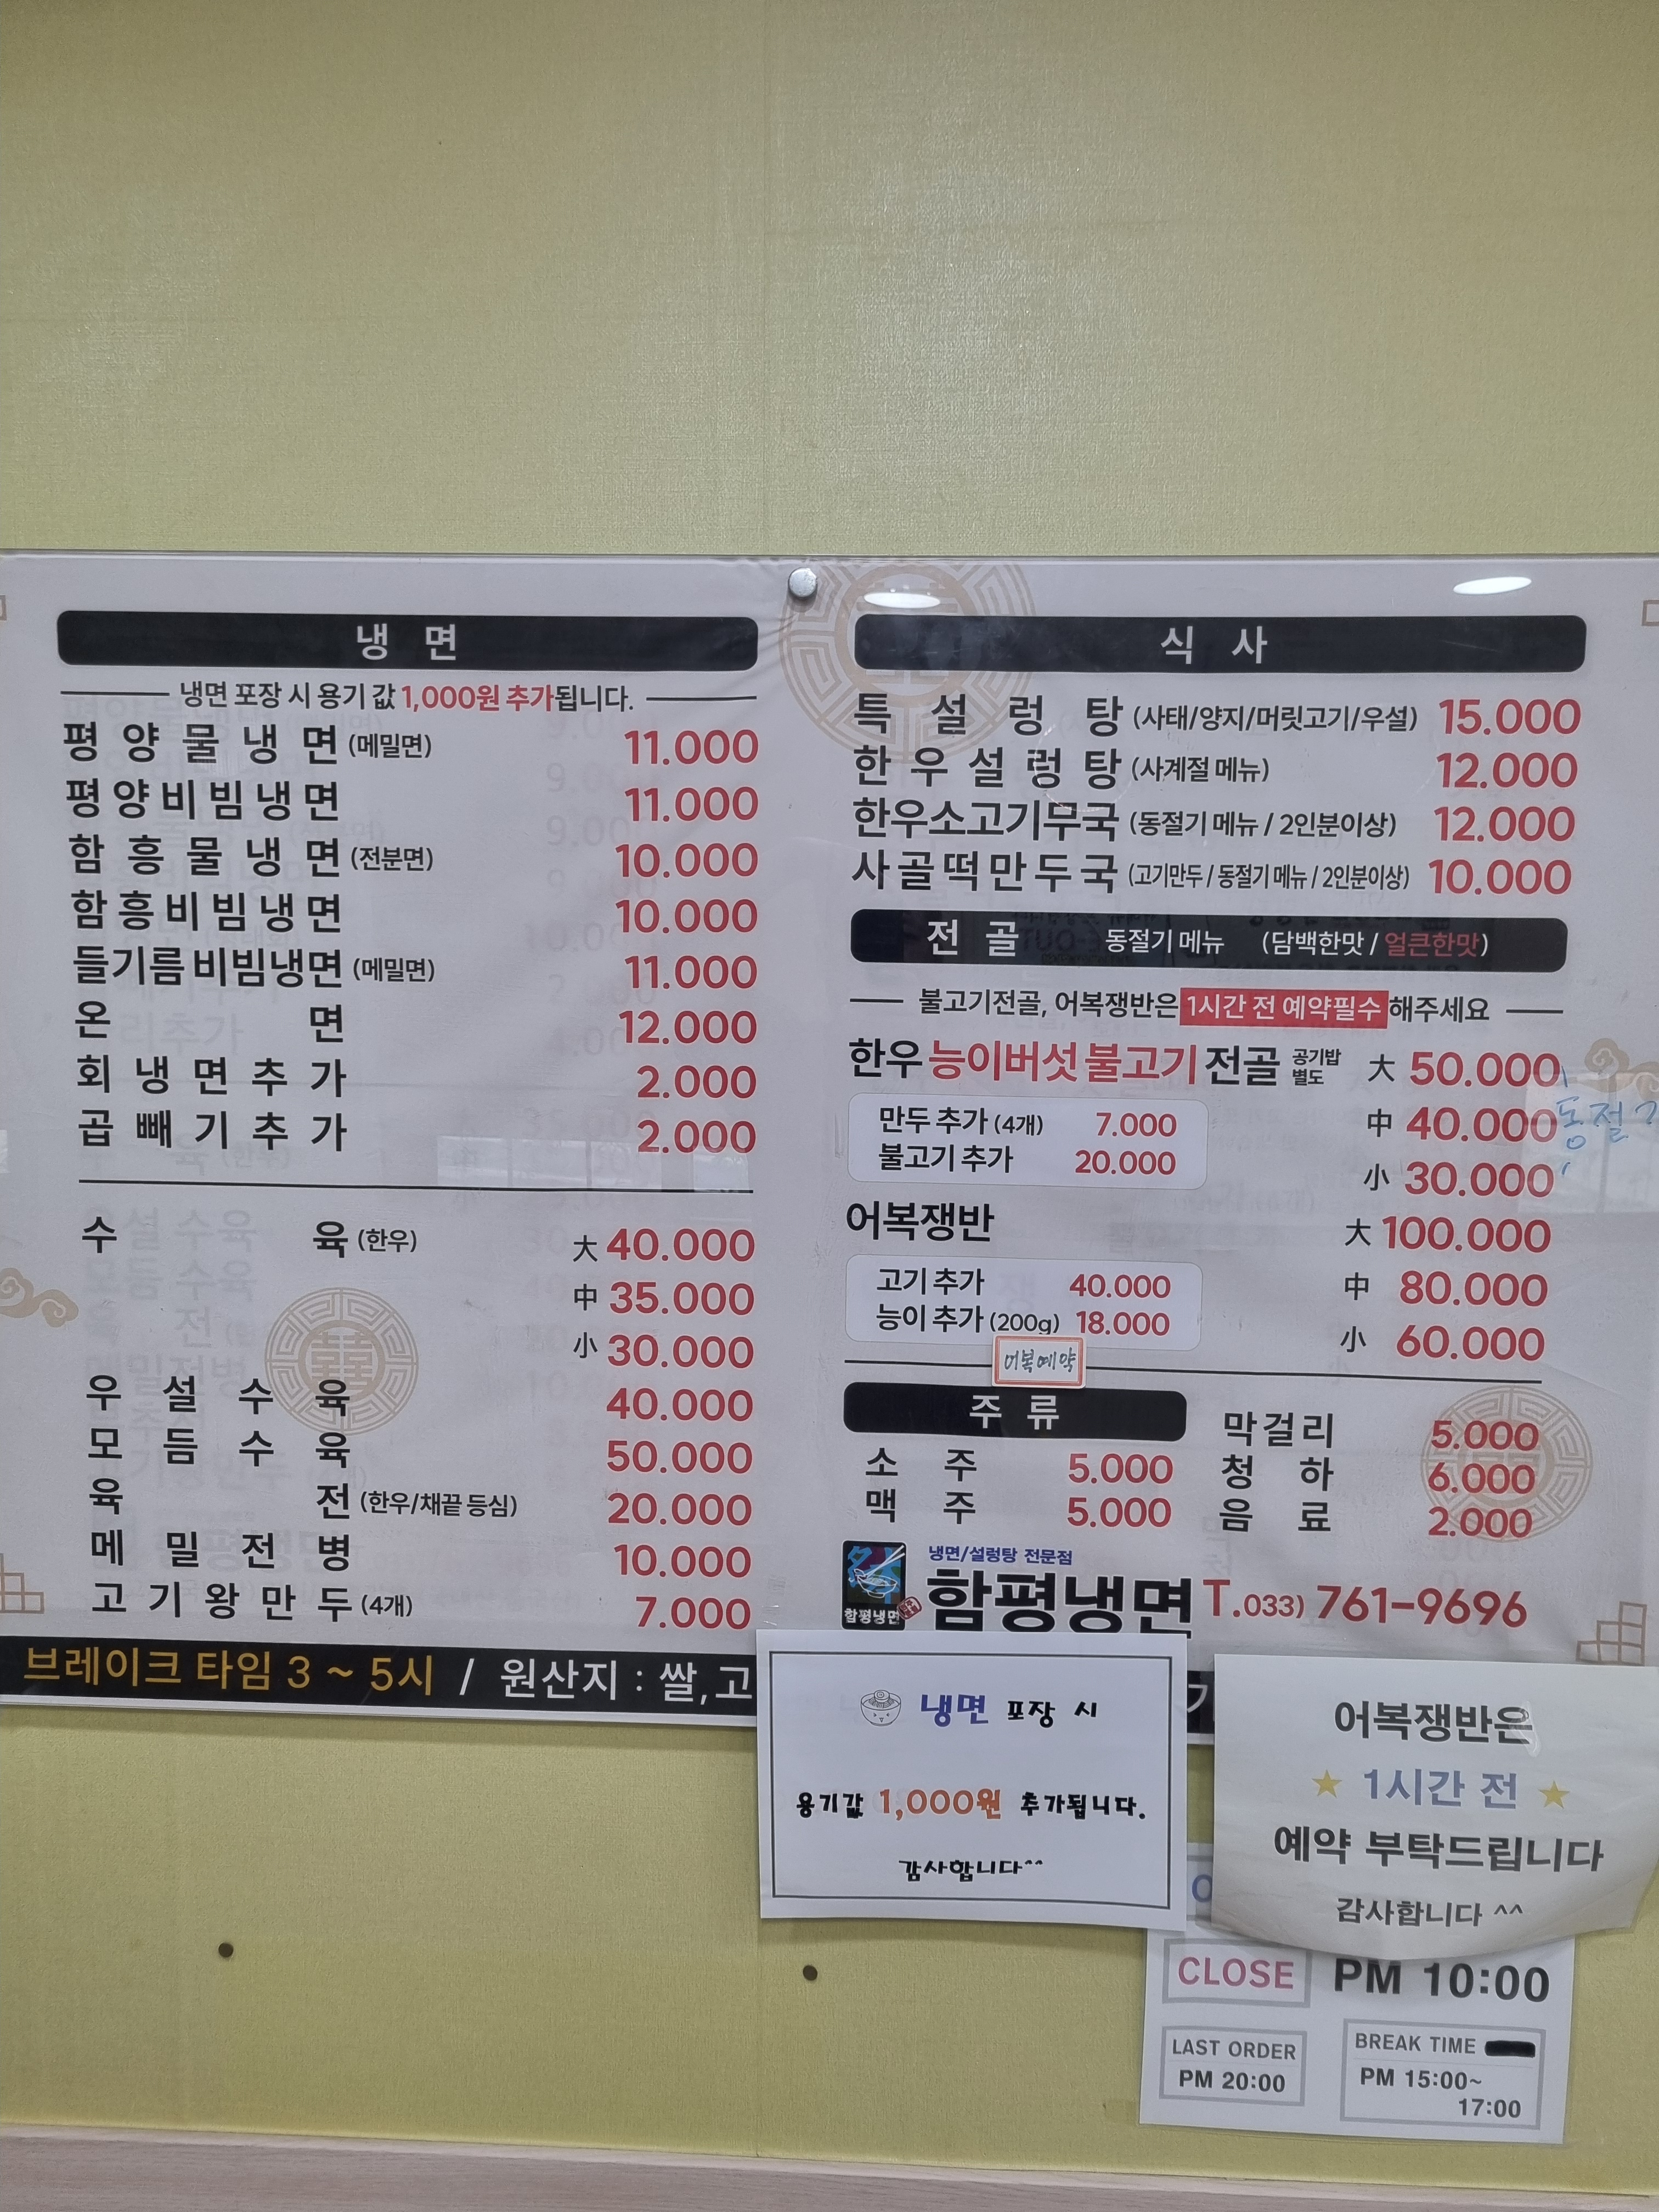 냉면
냉면 포장 시 용기 값 1,000원 추가됩니다.
평양물냉면 (메밀면) 11.000
평양비빔냉면 11.000
함흥물냉면 (전분면) 10.000
함흥비빔냉면 10.000
들기름비빔냉면 (메밀면) 11.000
온면 12.000
회냉면추가 2.000
곱빼기추가 2.000
수육 (한우) 大 40.000
中 35.000
小 30.000
우설수육 40.000
모듬수육 50.000
육전 (한우/채끝 등심) 20.000
메밀전병 10.000
고기왕만두 (4개) 7.000
브레이크 타임 3 ~ 5시 / 원산지 : 쌀,고
식사
특설렁탕 (사태/양지/머릿고기/우설) 15.000
한우설렁탕 (사계절 메뉴) 12.000
한우소고기무국 (동절기 메뉴 / 2인분이상) 12.000
사골떡만두국 (고기만두 / 동절기 메뉴 / 2인분이상) 10.000
전골 동절기 메뉴 (담백한맛 / 얼큰한맛)
불고기전골, 어복쟁반은 1시간 전 예약필수 해주세요
한우 능이버섯 불고기 전골 공기밥 별도 大 50.000
만두 추가 (4개) 7.000 中 40.000
동절기
불고기 추가 20.000 小 30.000
어복쟁반 大 100.000
고기 추가 40.000 中 80.000
능이 추가 (200g) 18.000 小 60.000
어복예약
주류
소주 5.000
맥주 5.000
막걸리 5.000
청하 6.000
음료 2.000
냉면/설렁탕 전문점
함평냉면
함평냉면 T.033) 761-9696
냉면 포장 시
용기값 1,000원 추가됩니다.
감사합니다^^
어복쟁반은
★ 1시간 전 ★
예약 부탁드립니다
감사합니다 ^^
CLOSE PM 10:00
LAST ORDER
PM 20:00
BREAK TIME
PM 15:00~
17:00